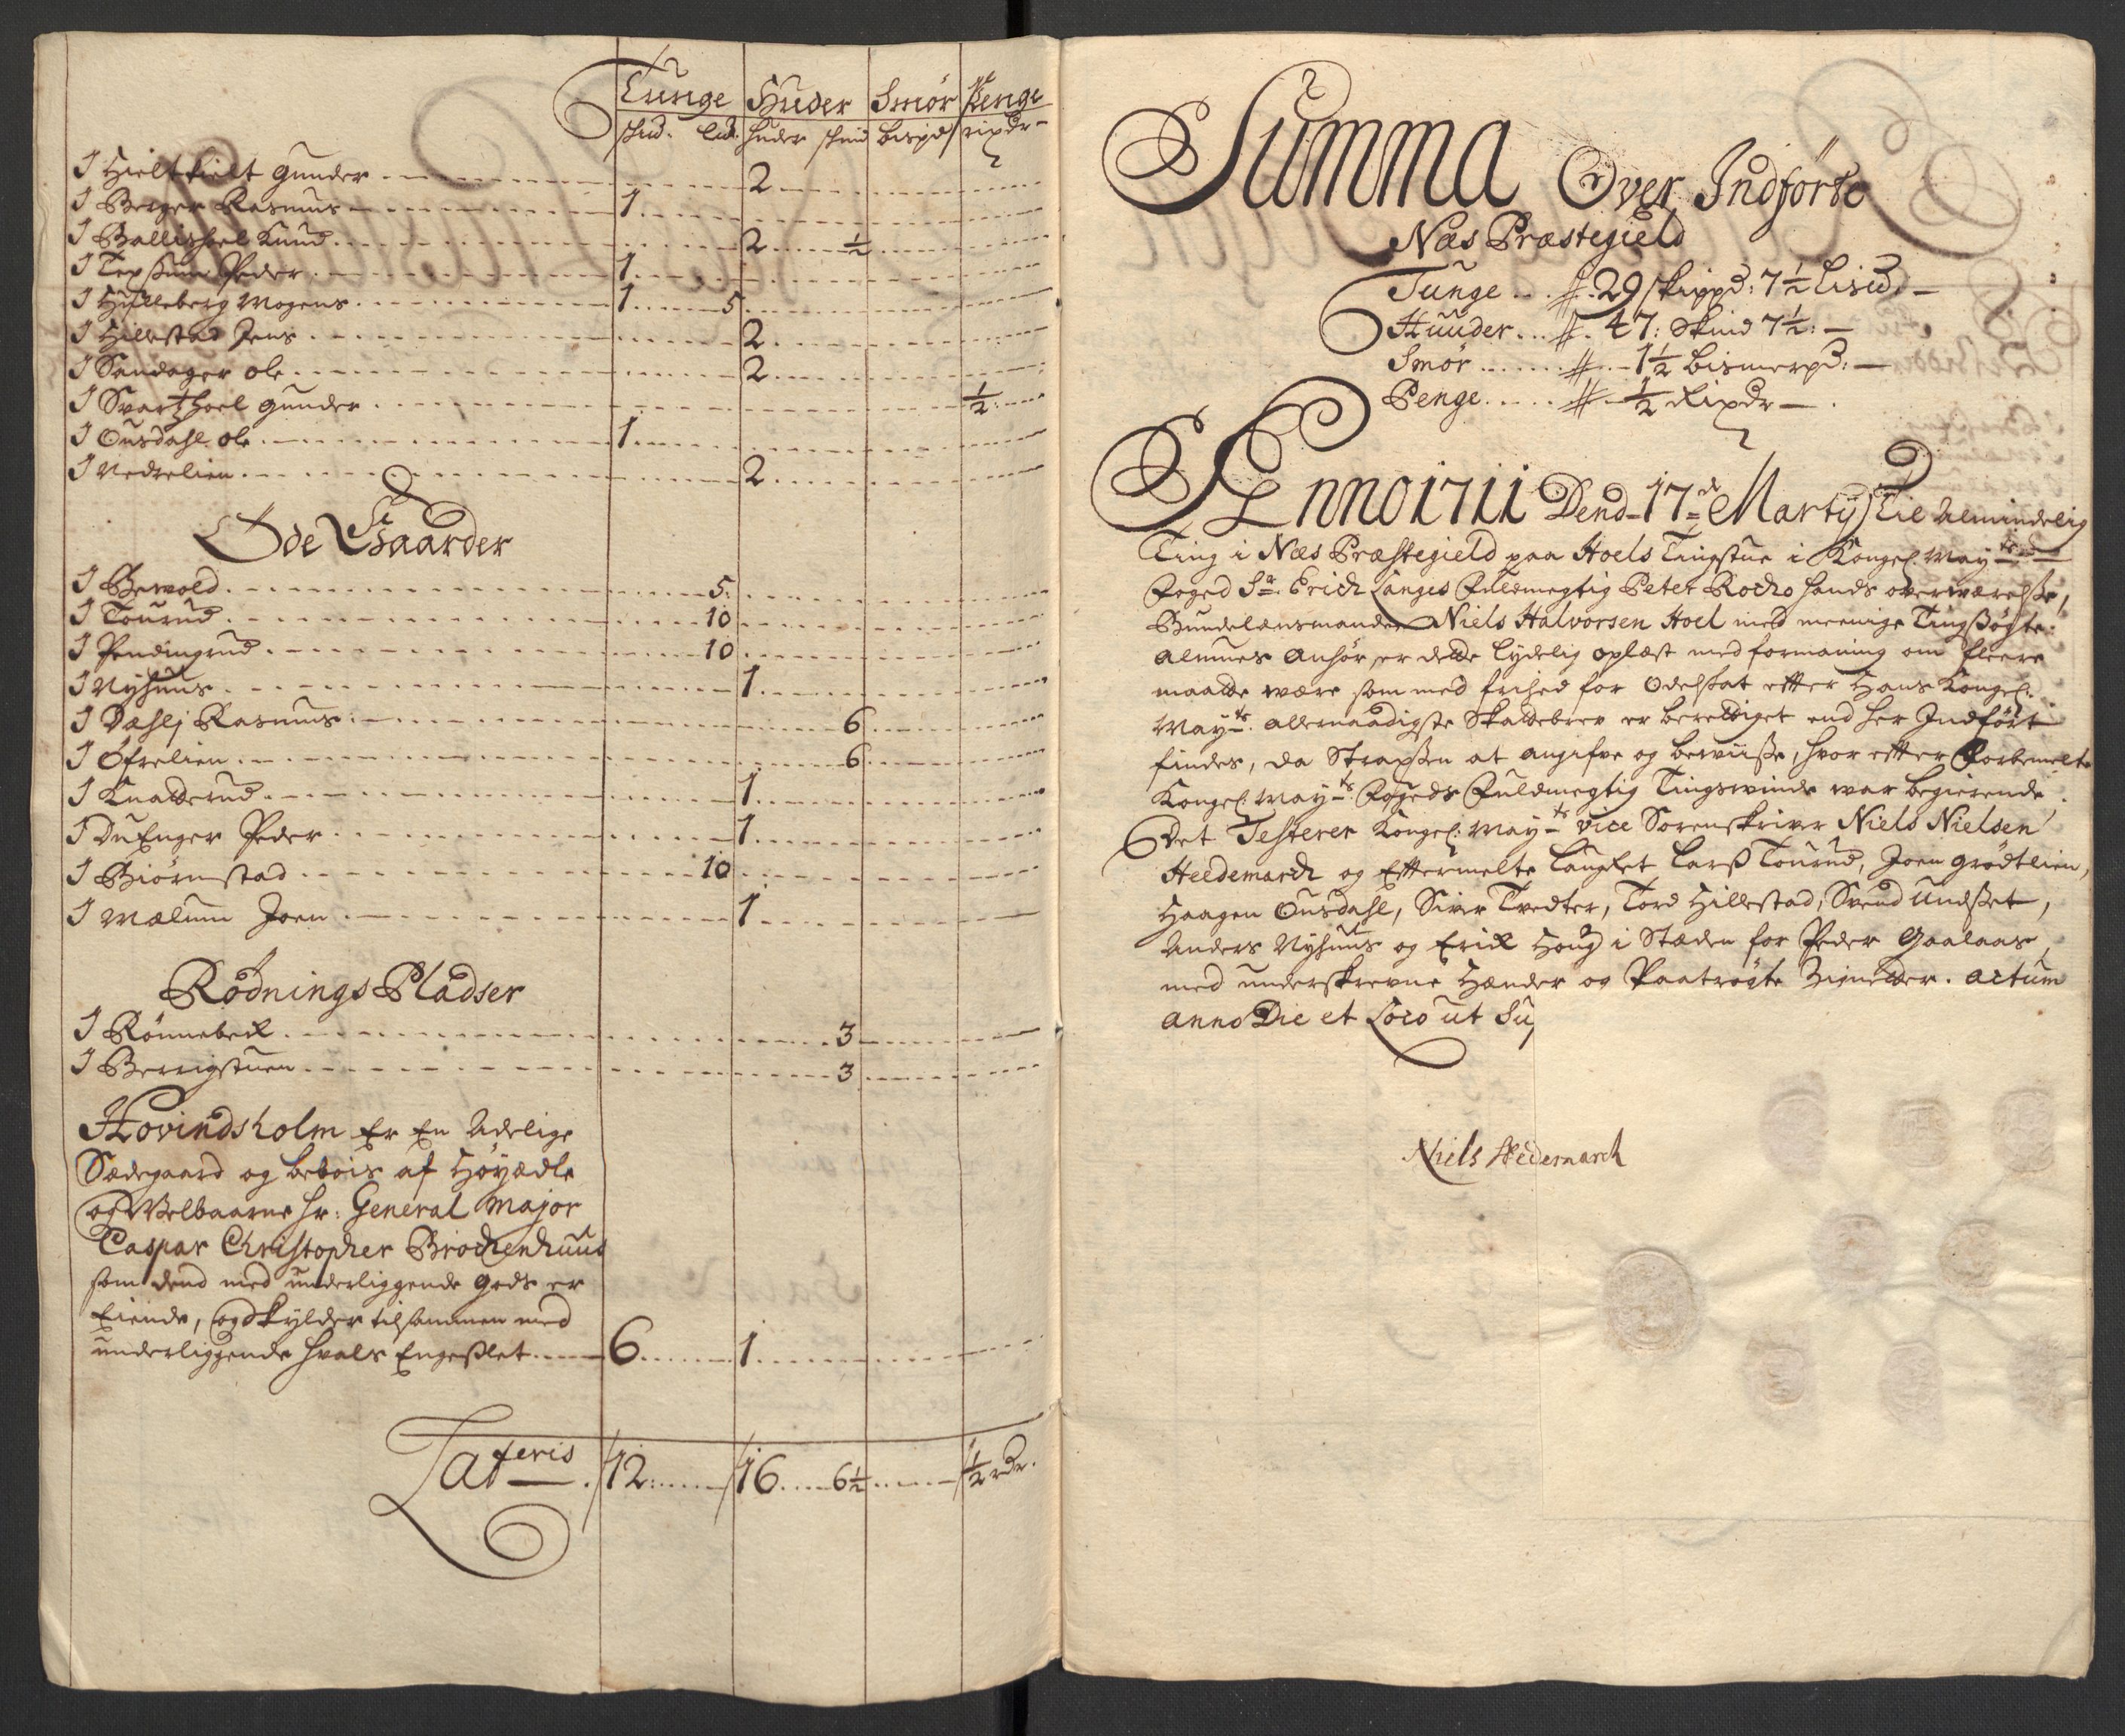 Tunge Huder Smør Penge
skud. Lid. huder skind bispd rixdr
I Hieltkielt Gunder 2
I Berger Rasmus 1
I Ballishoel Knud 2 ½
I Peder 1
I Hulleberg Mogens 1 5
I Hillestad Jens 2
I Sandager ole 2
I Svartzhoel Gunder ½
I Ousdahl ole 1
I Nedrelien 2
Øde Gaarder
I Berwold 5
I Tourud 10
I Pendingrud 10
I Nyhuus 1
I Dæhlj Rasmus 6
I Øfrelien 6
I Knatterud 1
I DuEnger Peder 1
I Biørnstad 10
I Mælum Joen 1
Rødnings Pladser
I Rønnebeck 3
I Berrigstuen 3
Hovindsholm Er En Adelige
Sædegaard og beboes af Høyædle
og Welbaarne Hr: General Major
Caspar Christopher Brockenhuus
som dend med underliggende Gods er
Eiende, og Skylder tilsammen med
underliggende hvals Engeslet 6 1
Lateris 12 16 6½ ½ rdr.
Summa Over Indførte
Næs Præstegield
Tunge 29 skippd: 7½ Lisud.
Huuder 47: Skind 7½:
Smør 1½ bismerpd:
Penge ½ Rixdr
Anno 1711 Dend 17de Martij til Almindelig
Ting i Næs Præstegield paa Hoels Tingstue i Kongel. May ts
Foged Sr. Erich Langes Fuldmegtig Peter Rocho hands overværelse,
Bundelænsmanden Niels Halvorsen Hoel med meenige Tingsøgte
Almues Anhør, er dette Lydelig oplæst med formaning om fleere
maatte være som med frihed for Odelskat efter Hans Kongel.
May ts. allernaadigste Skattebrev er berettiget end her Indført
findes, da Strapsen at angifve og beviise, hvor efter Forbemelte
Kongel. May ts Fogeds Fuldmegtig Tingsvinde var begierende
Det Testerer Kongel: May ts vice Sorenskriver Niels Nielsen
Heedemarch og Eftermelte Laugret Larss Tourud, Joen Grødtlien,
Haagen Ousdahl, Siver Tvedter, Tord Hillestad, Svend Undset,
Anders Nyhuus og Erick Houg i Stæden for Peder Gaalaas
med underskrevne Hænder og Paatrøgte Zigneter. Actum
Anno Die et Loco ut Su
Niels Hedemarch